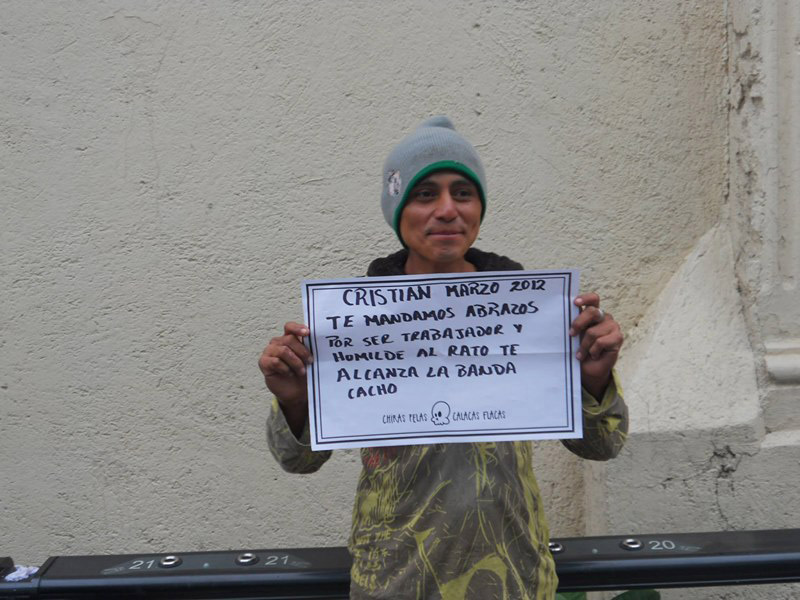 CRISTIAN MARZO 2012
TE MANDAMOS ABRAZOS
POR SER TRABAJADOR Y
HUMILDE AL RATO TE
ALCANZA LA BANDA
CACHO
CHIRAS PELAS CALACAS FLACAS
21 21 20